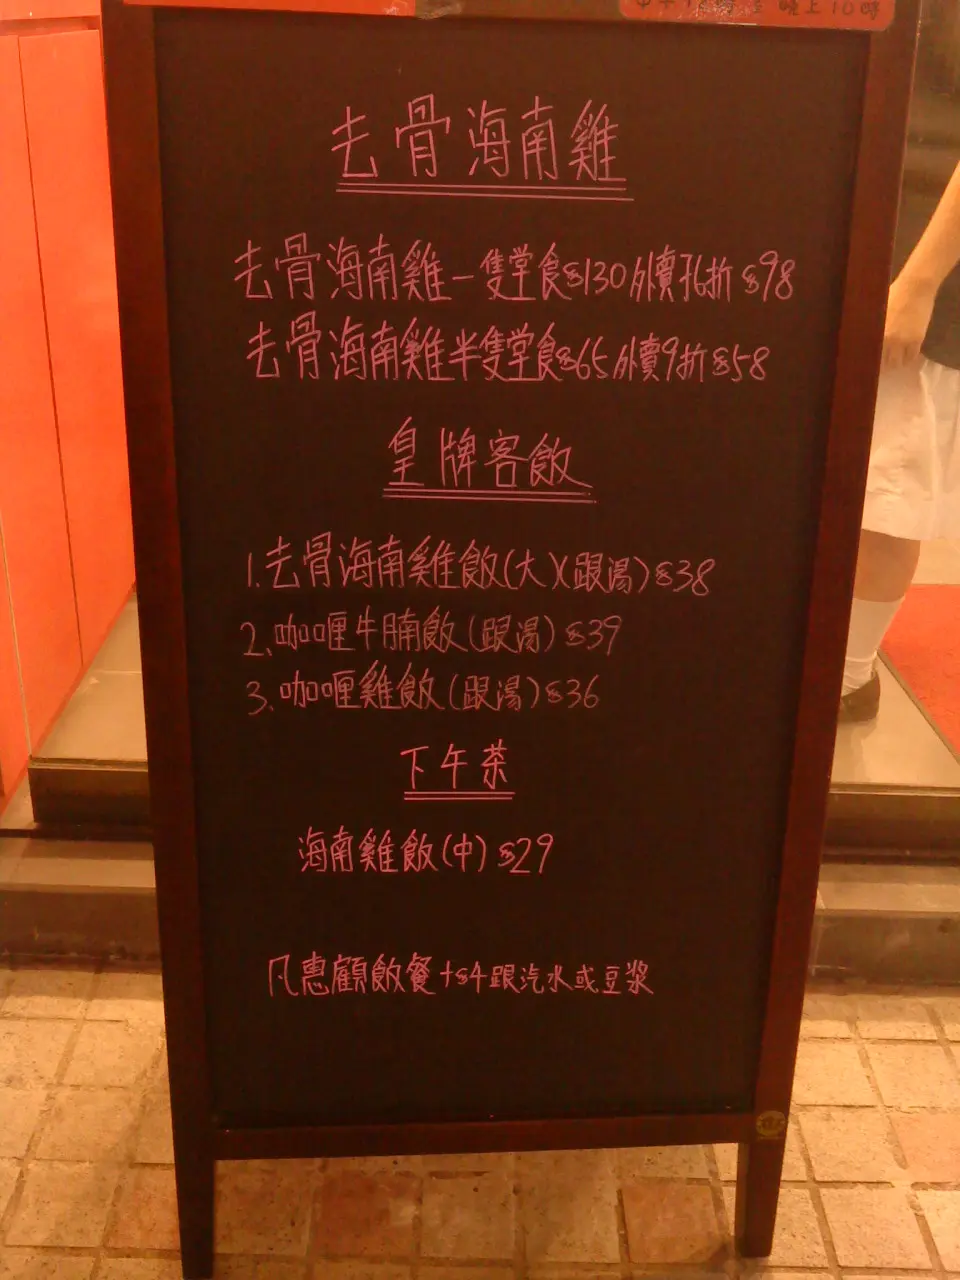 晚上10時
去骨海南雞
去骨海南雞一隻堂食$130外賣折$98
去骨海南雞半隻堂食$65外賣9折$58
皇牌客飯
1.去骨海南雞飯(大)(跟湯)$38
2.咖喱牛腩飯(跟湯)$39
3.咖喱雞飯(跟湯)$36
下午茶
海南雞飯(中)$29
凡惠顧飯餐+$4跟汽水或豆漿